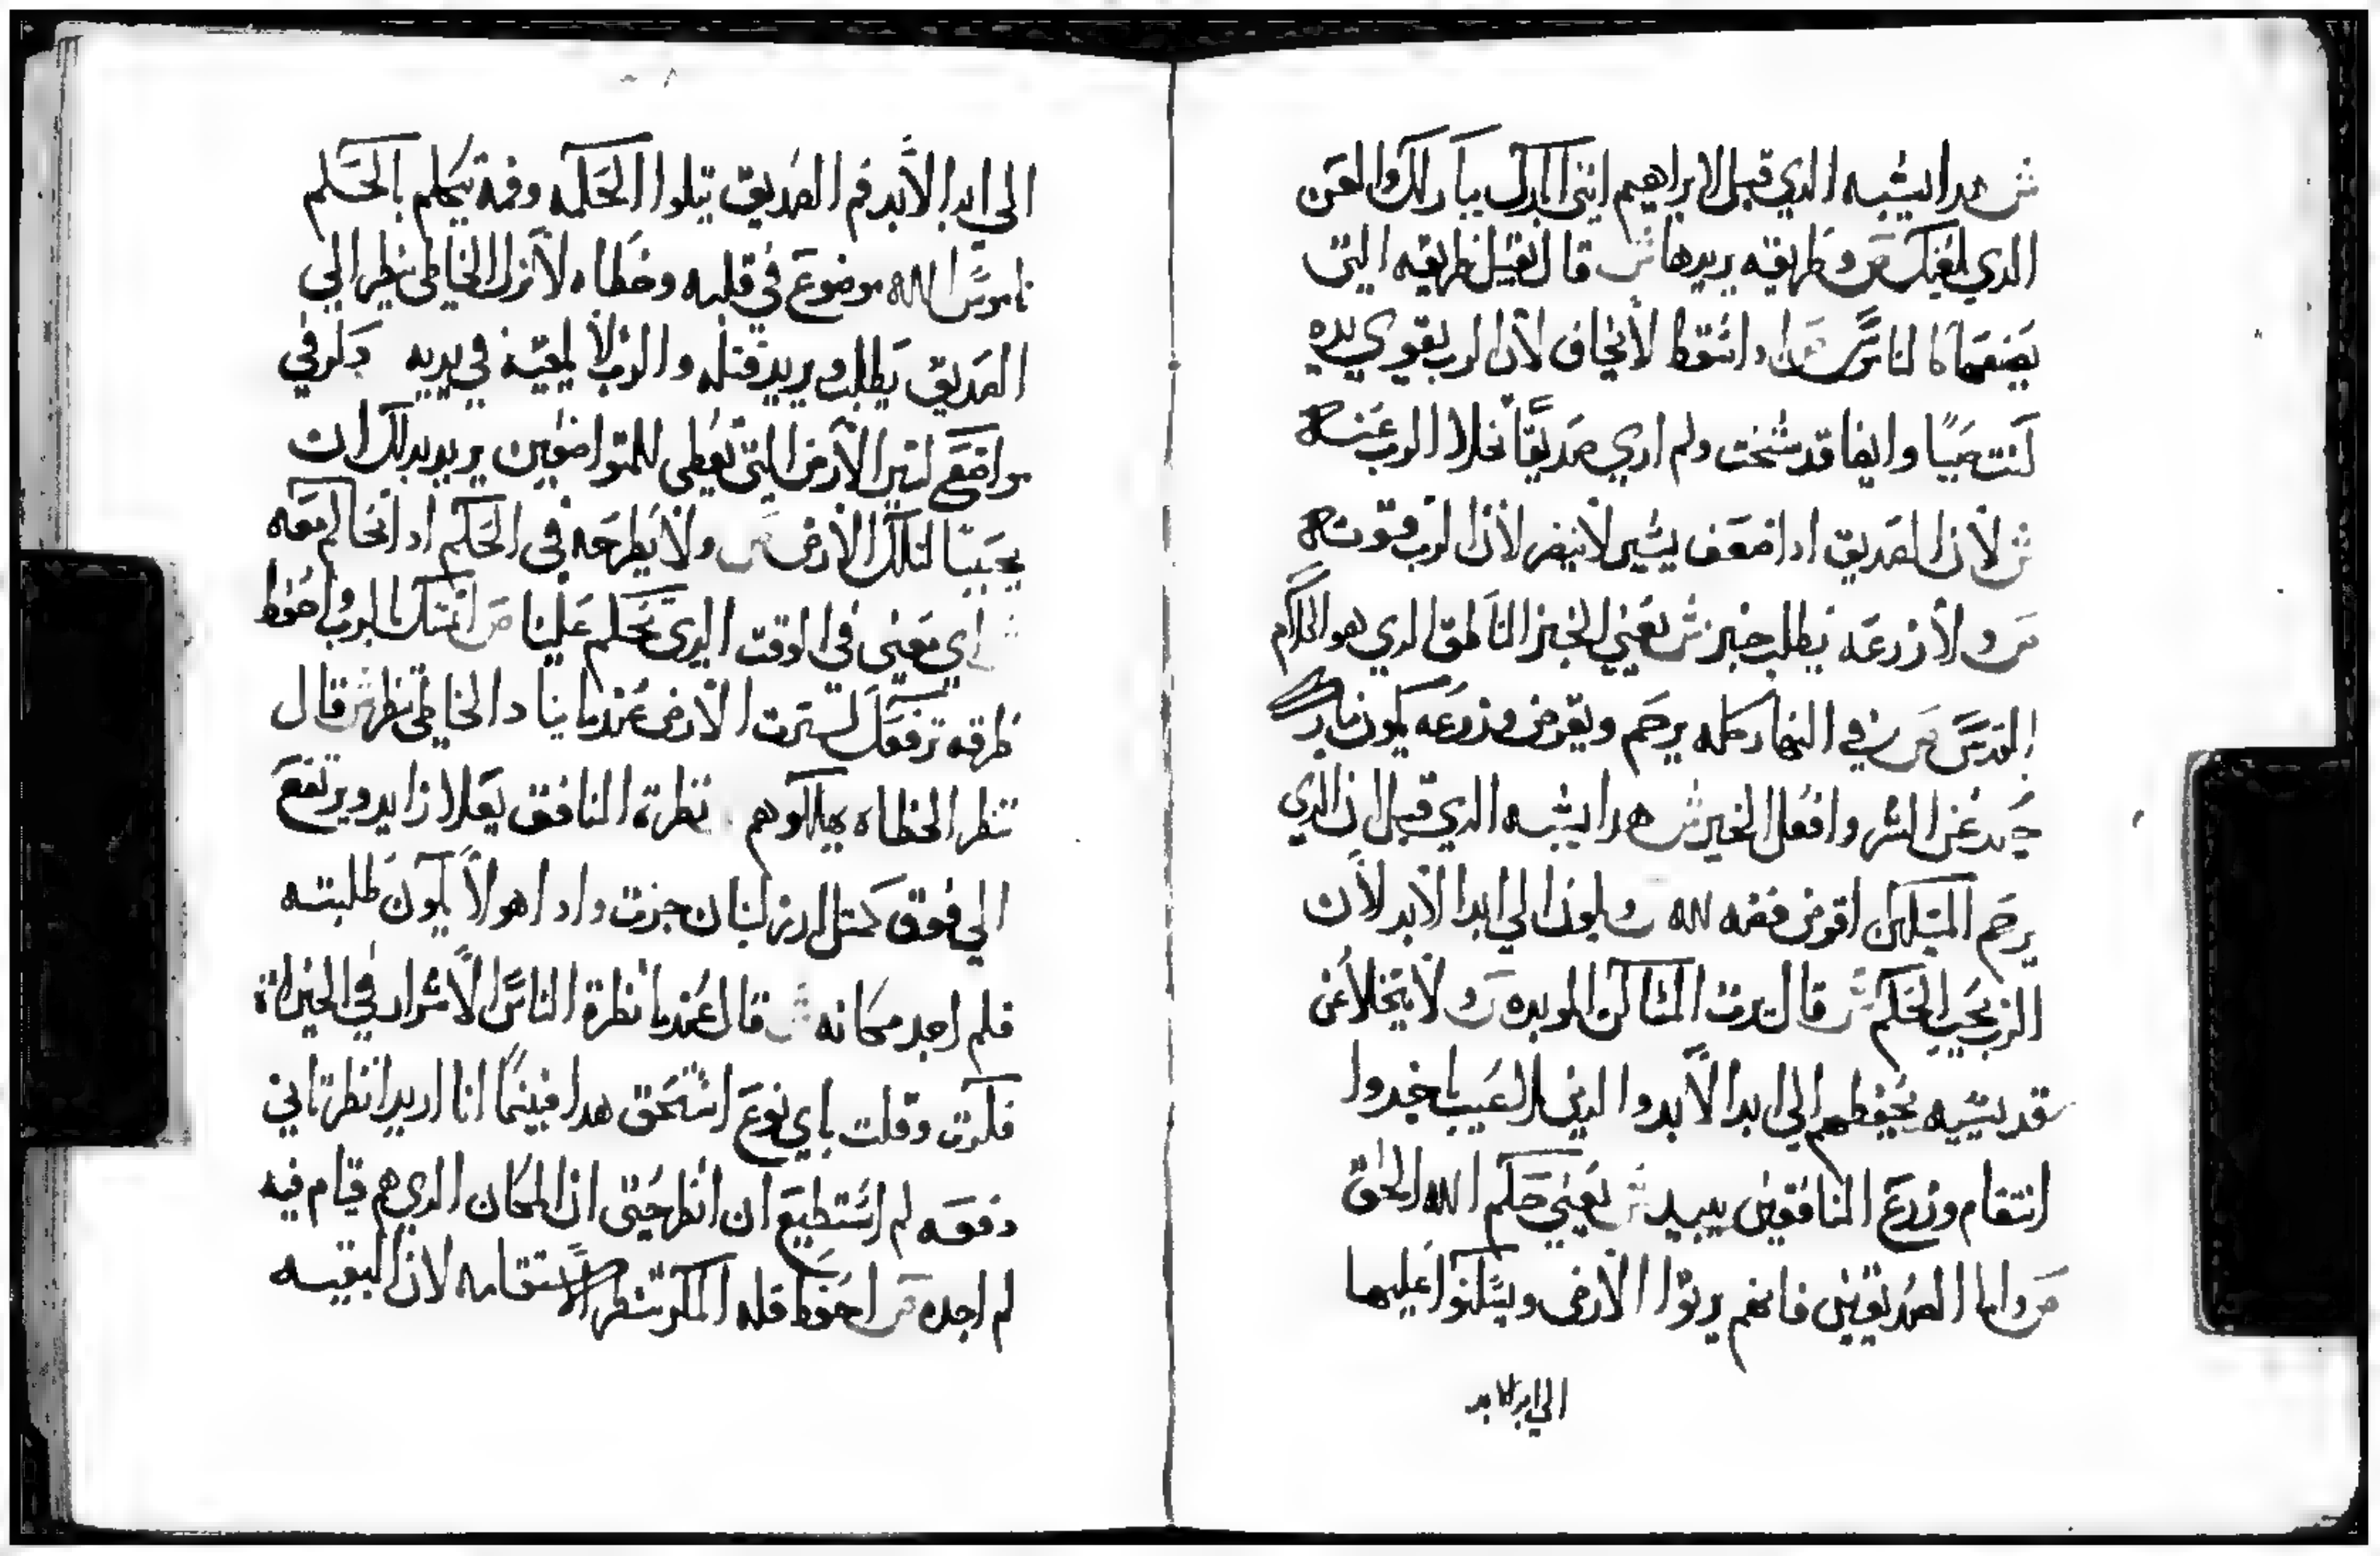 ش هدا يشبه الدي قيل لابراهيم انني ابارك مباركك والعن
الدي يلعنك ص وطريقه يريدها ش قال تقبل طريقه التي
يصنعها كالناس ص ادا سقط لا يخاف لان الرب يقوي يده
كنت صبيًا وايضا قد شخت ولم اري صديقًا تخلا الرب عنه
ش لان الصديق ادا ضعف يسير لا يضر لان الرب قوته
ص ولا زرعه يطلب خبز ش يعني الخبز الناطق الدي هو الكلام
المقدس ص في النهار كله يرحم ويقرض وزرعه يكون مبارك
حيد عن الشر وافعل الخير ش هدا يشبه الدي قيل ان الدي
يرحم المسكين اقرض فضه لله ويكون الي ابدا الابد لان
الرب يحب الحكم ش قال ترت المساكن الموبده ص ولا يتخلا عن
قديسيه يحفظهم الي ابدا الابد والدين بلا عيب ياخدوا
انتقام وزرع المنافقين يبيد ش يعني حكم الله الحق
ص واما الصديقين فانهم يرتوا الارض ويسكنوا عليها
الي ابد الابد
الي ابدا الابد فم الصديق يتلوا الحكمه وفمه يتكلم بالحكم
ناموس الله موضوع في قلبه وخطاه لا تزلك الخاطي ينظر الي
الصديق يطلب ويريد قتله والرب لا يلقيه في يديه دكر في
مواضع لتير الارض التي تعطي للمتواضعين يريد بدلك ان
يجيبنا لتلك الارض ص ولا يطرحه في الحكم ادا تحاكم معه
ش اي يعني في الوقت الدي تحكم علينا ص اتمسك بالرب واحفظ
طرقه ترفعك لترت الارض عندما يباد الخاطي تنظر ش قال
تنظر الخطاه يهلكوهم نظرت المنافق يعلا زايد ويرتفع
الي فوق كمتل ارز لبنان جزت وادا هو لا يكون طلبته
فلم اجد مكانه ش قال عندما نظرة الناس الاشرار في الخيرات
فكرت وقلت باي نوع استحق هدا فبينما انا اريد انظر تاني
دفعه لم استطيع ان انظر حتى ان المكان الدي هم قيام فيه
لم اجده ص احفظ قله المكر تنظر الاستقامه لان البقيه